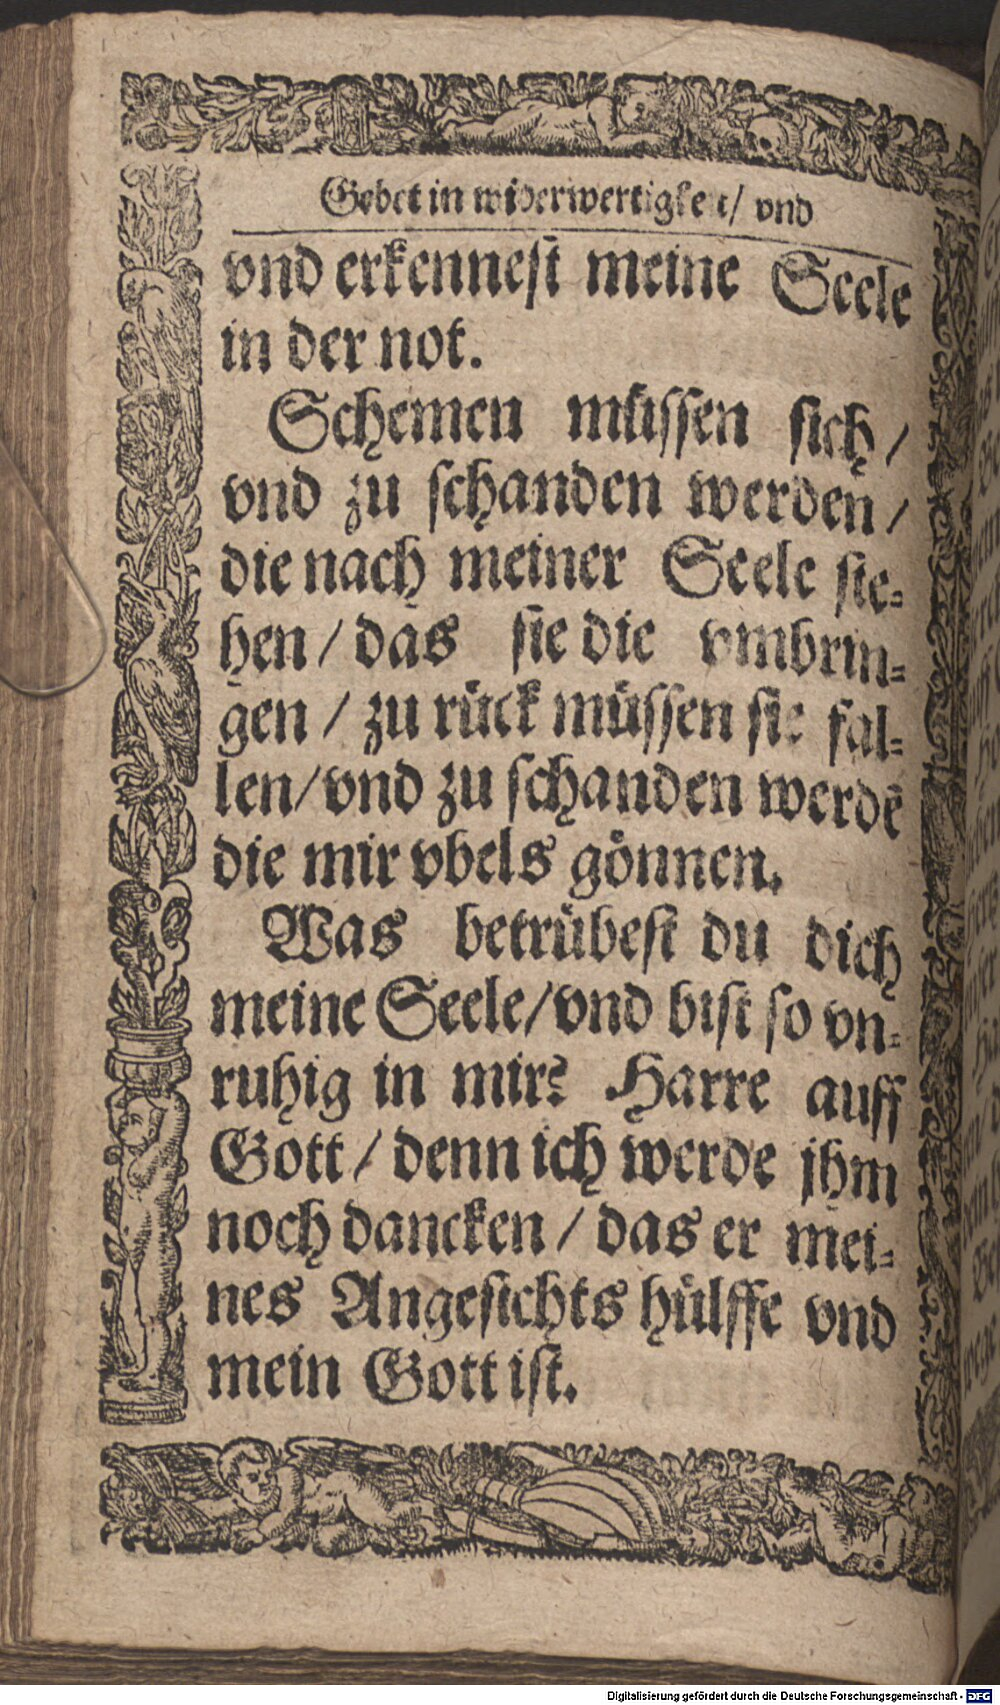 Gebet in widerwertigkeit/ vnd
vnd erkennest meine Seele
in der not.
Schemen müssen sich/
vnd zu schanden werden/
die nach meiner Seele ste-
hen/ das sie die vmbrin-
gen/ zu rück müssen sie fal-
len/ vnd zu schanden werdē
die mir vbels gönnen.
Was betrübest du dich
meine Seele/ vnd bist so vn-
ruhig in mir? Harre auff
Gott/ denn ich werde jhm
noch dancken/ das er mei-
nes Angesichts hülffe vnd
mein Gott ist.
Digitalisierung gefördert durch die Deutsche Forschungsgemeinschaft - DFG